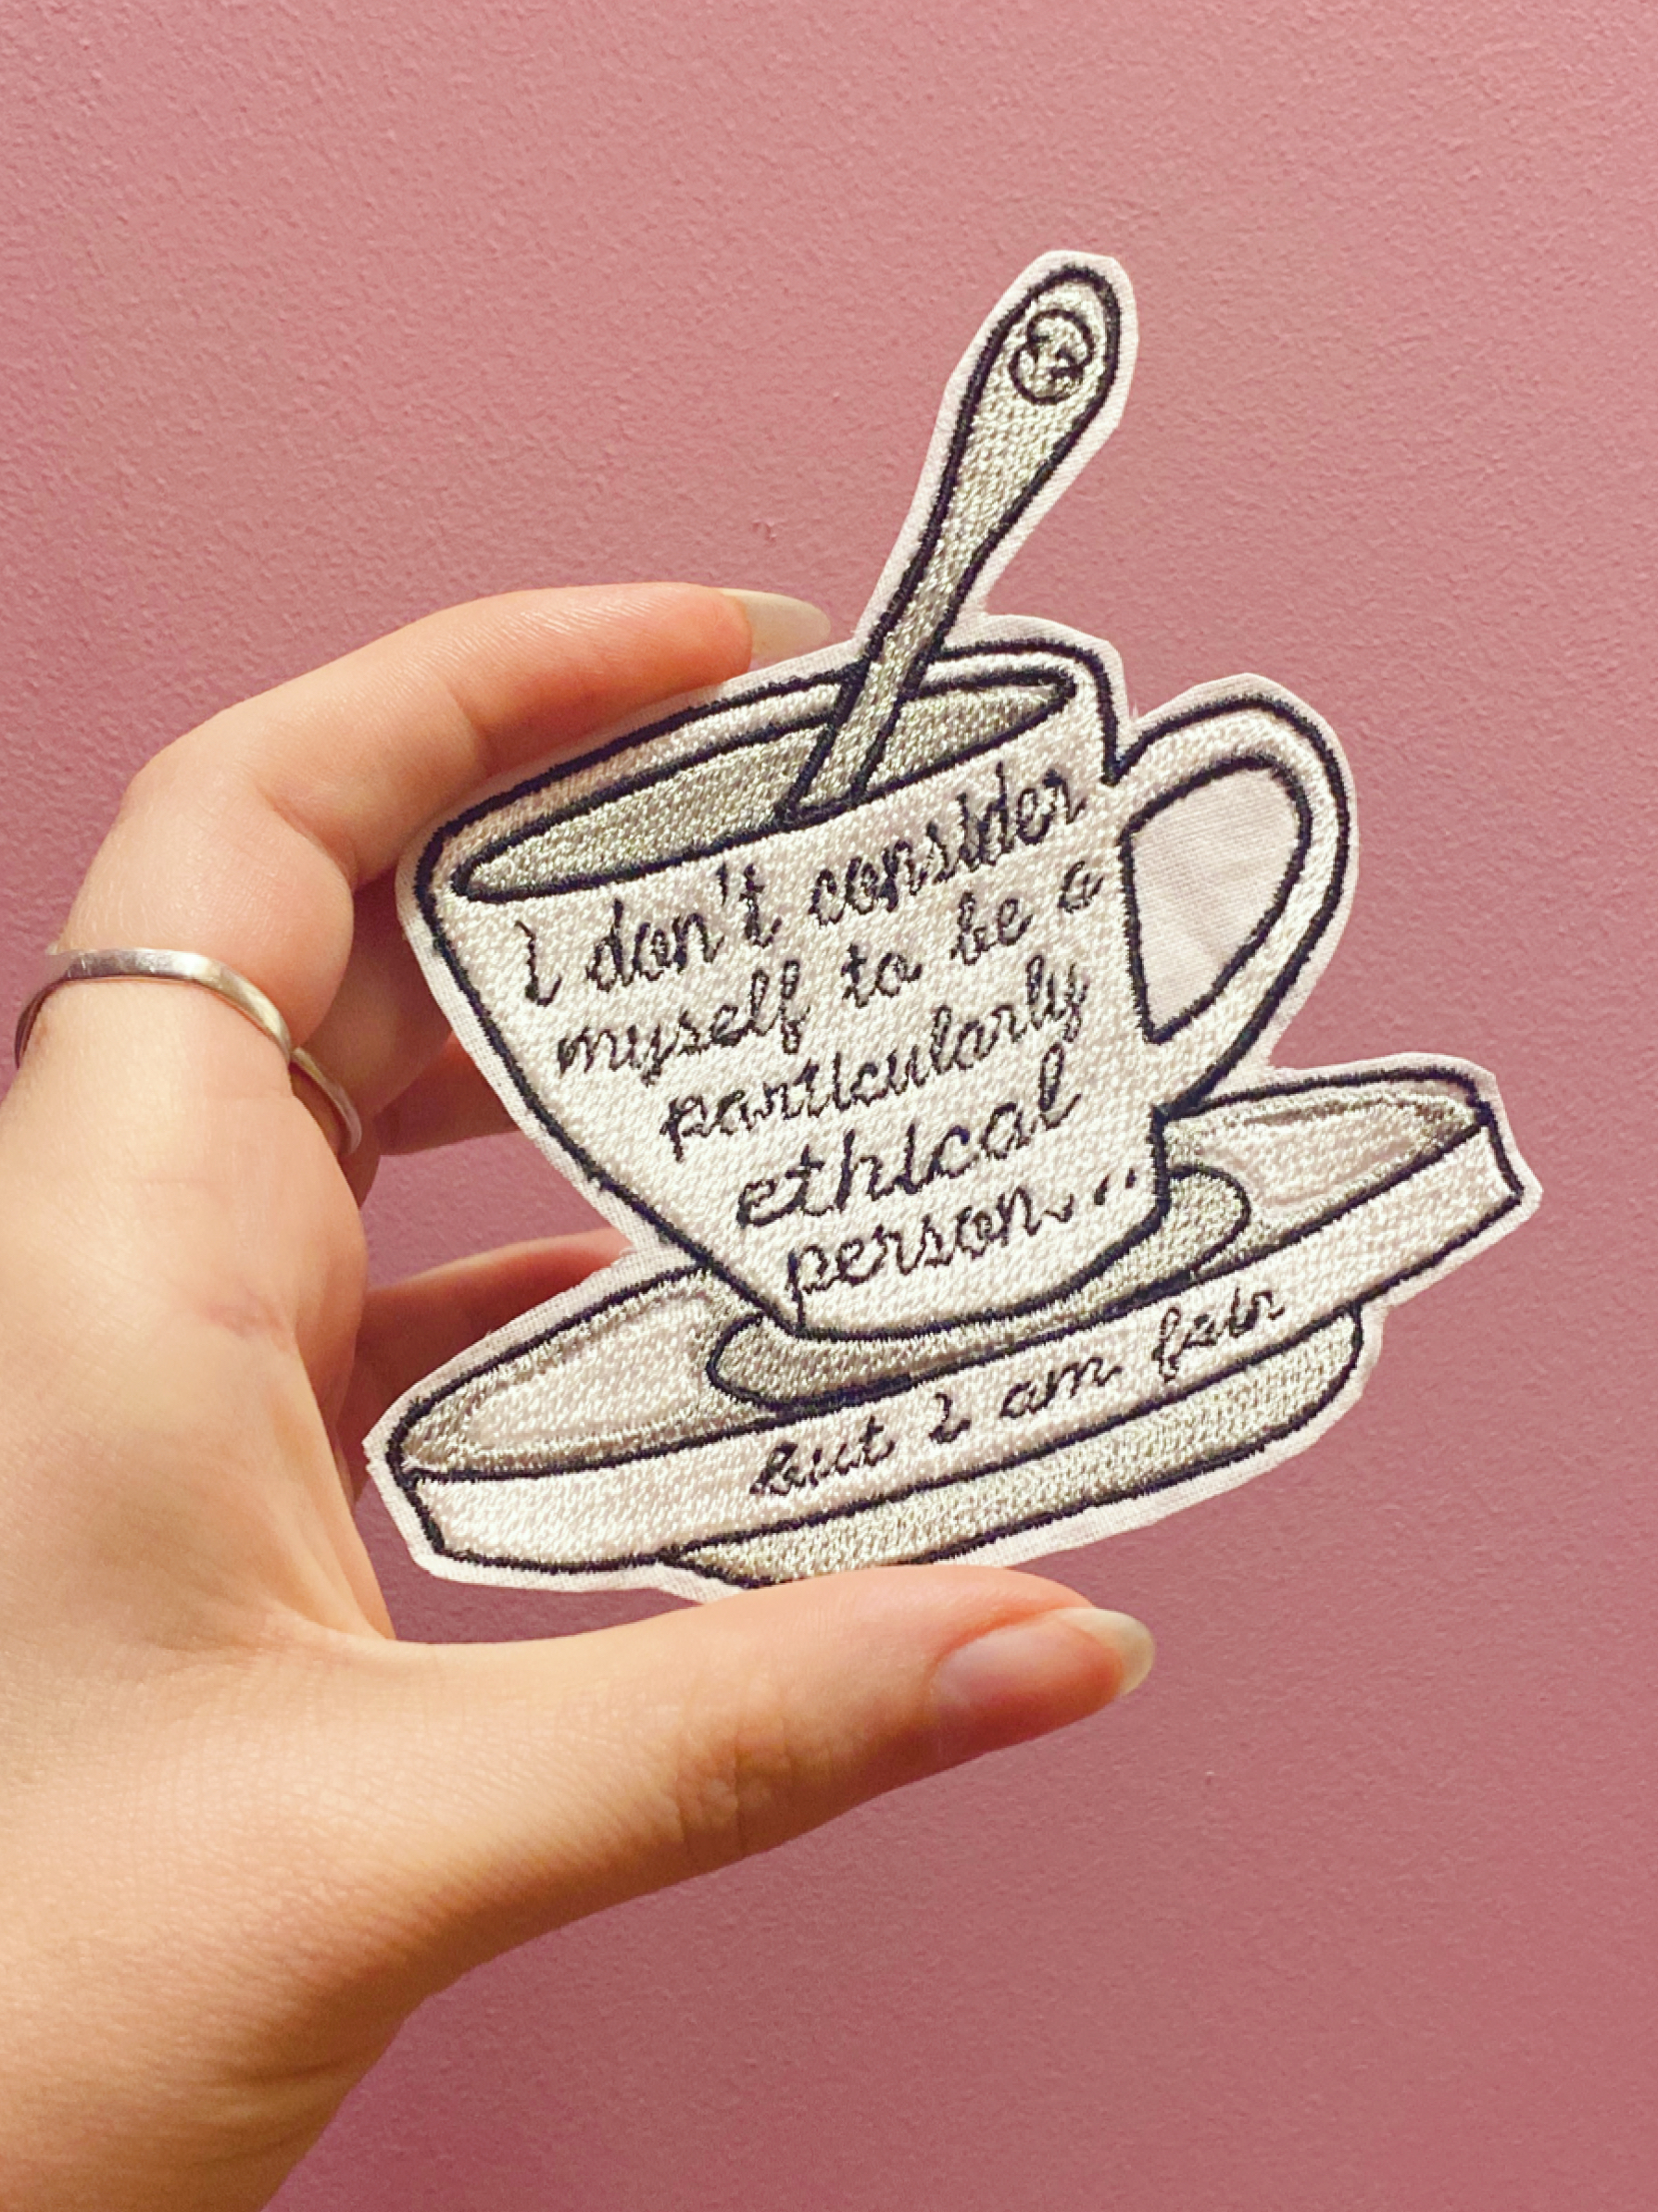 I don't consider
myself to be a
particularly
ethical
person...
but I am fair